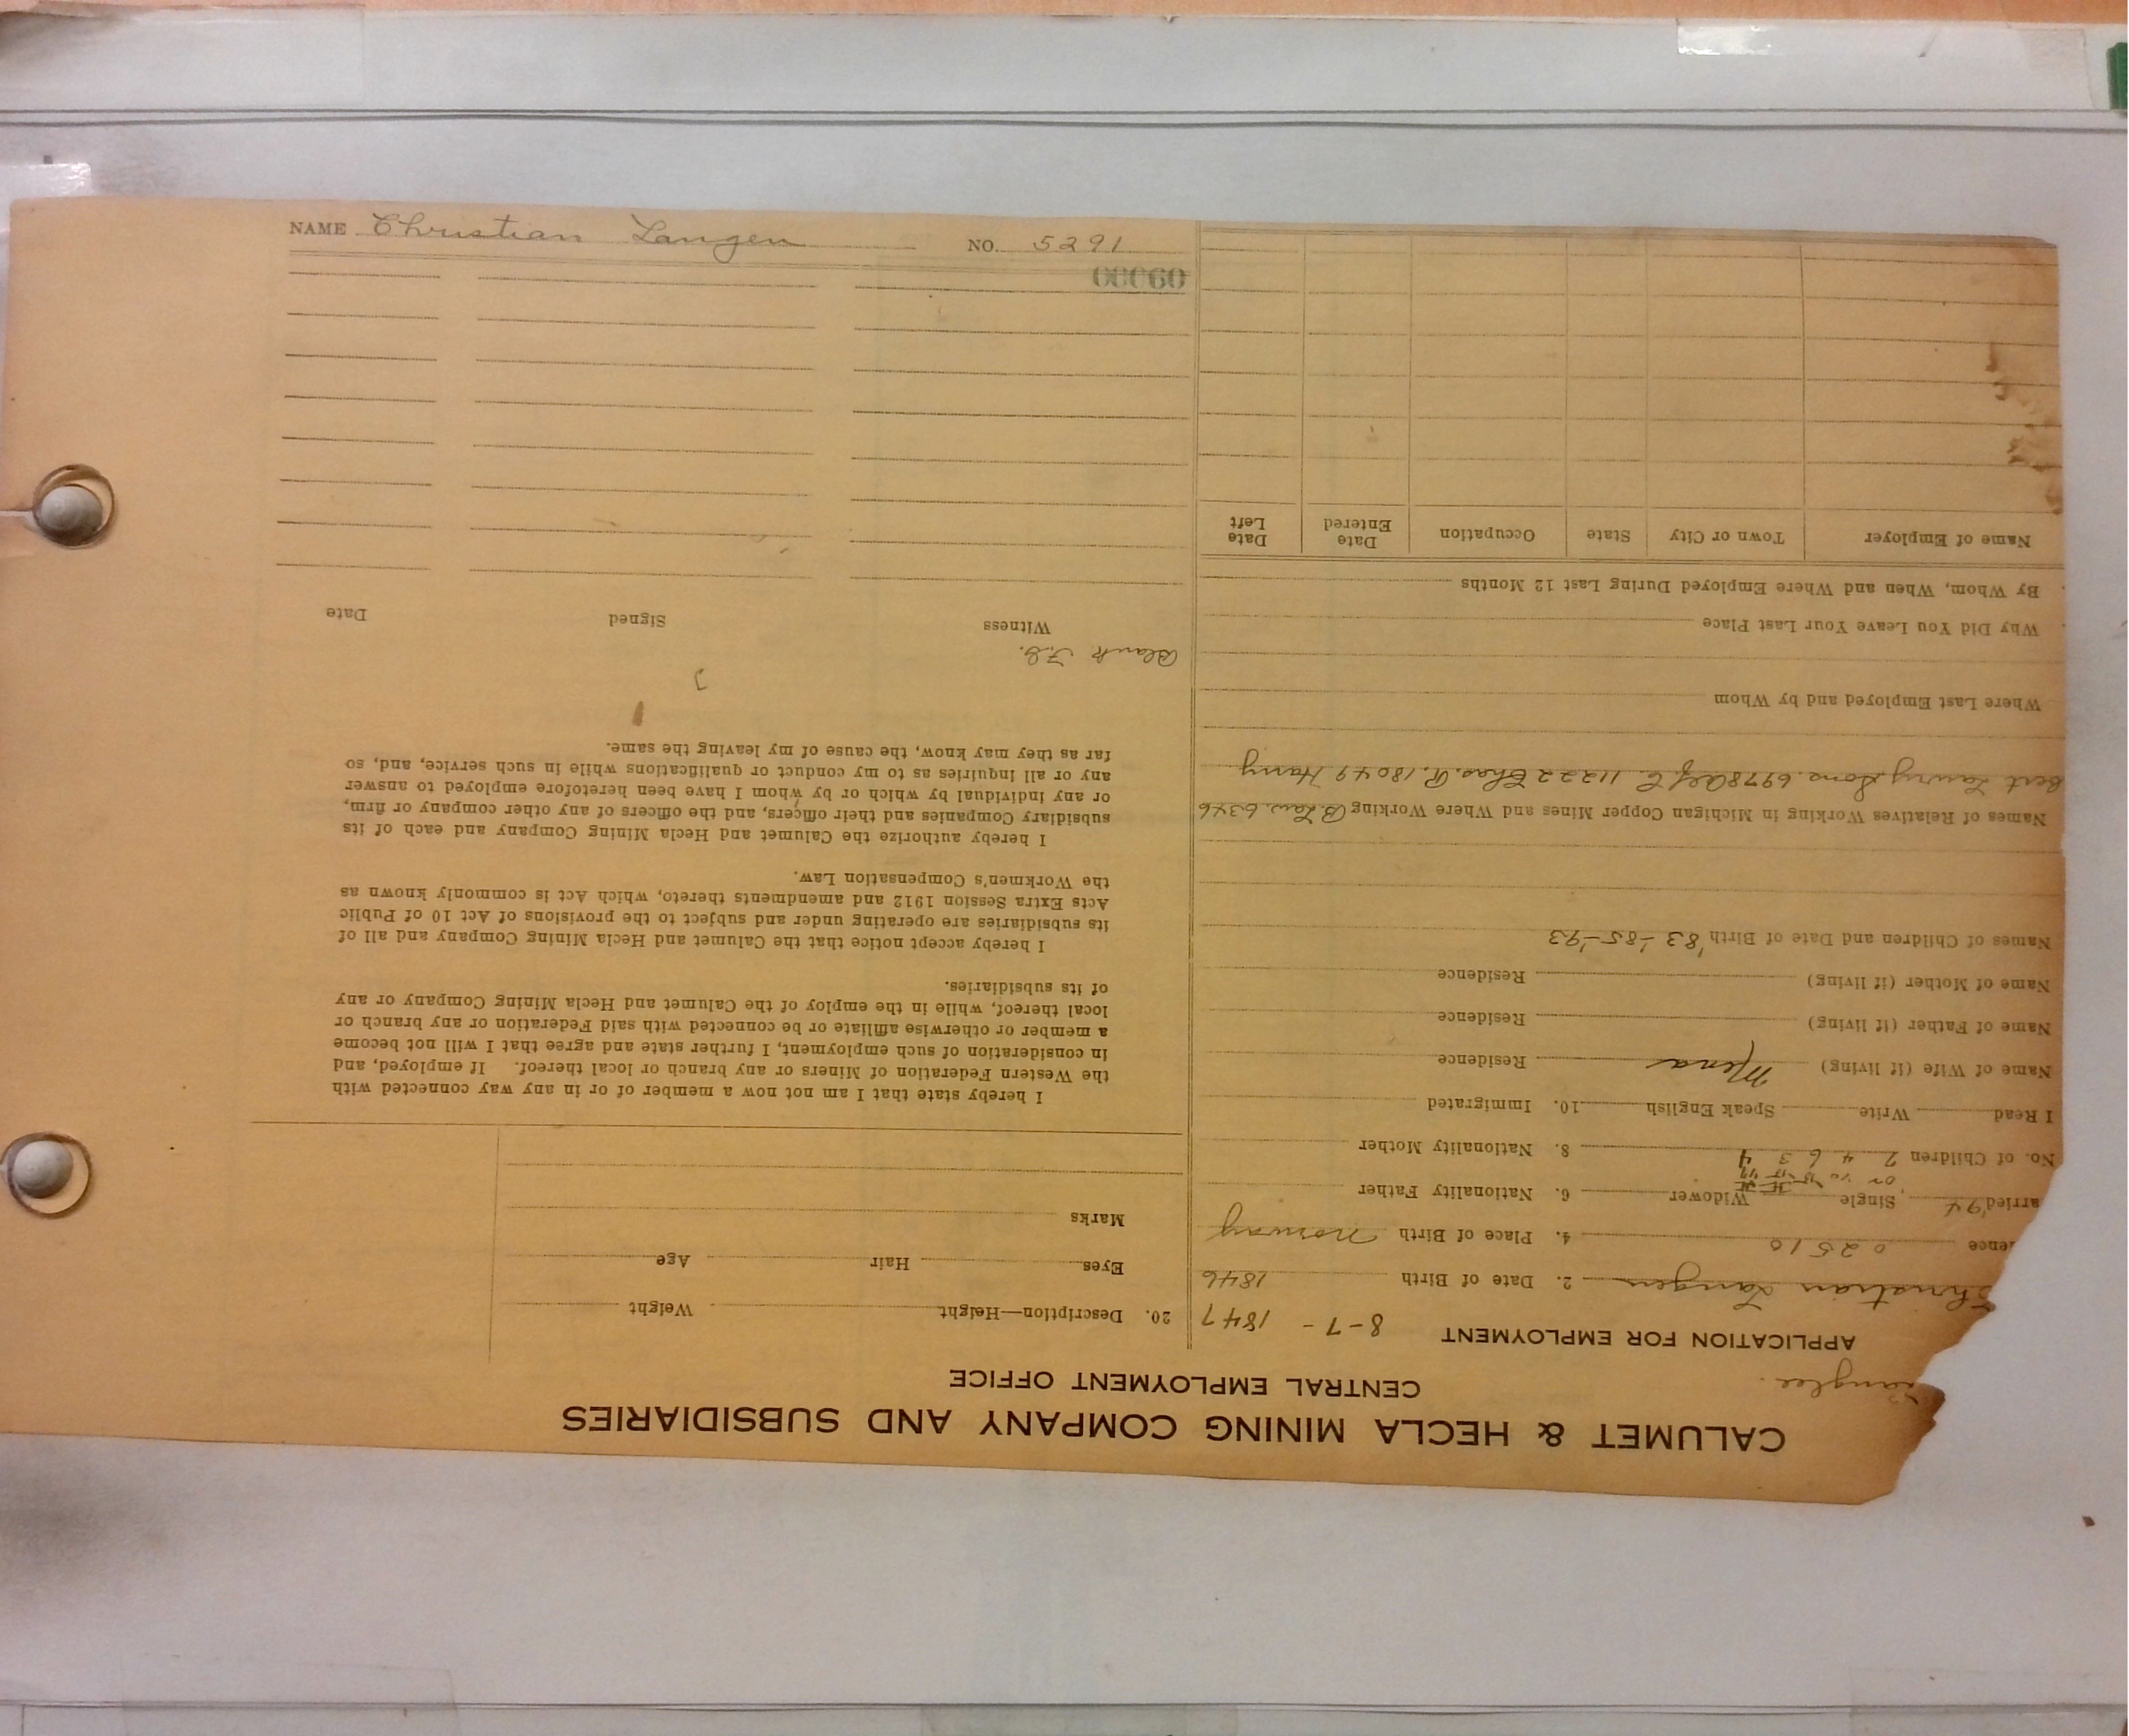 CALUMET & HECLA MINING COMPANY AND SUBSIDIARIES
CENTRAL EMPLOYMENT OFFICE
APPLICATION FOR EMPLOYMENT 8-7- 1847
Christian Langen 2. Date of Birth 1846
ence 02510 4. Place of Birth Norway
arried '94 Single Widower 6. Nationality Father
No. of Children 2 4 6 3 4 8. Nationality Mother
I Read Write Speak English 10. Immigrated
Name of Wife (if living) Mena Residence
Name of Father (if living) Residence
Name of Mother (if living) Residence
Names of Children and Date of Birth '83-'85-'93
Names of Relatives Working in Michigan Copper Mines and Where Working B. Law. 6346
Bert Lawry Sons. 6978 Alf. C. 11222 Chas. R. 18049 Harry
Where Last Employed and by Whom
Why Did You Leave Your Last Place
By Whom, When and Where Employed During Last 12 Months
Name of Employer Town or City State Occupation Date Entered Date Left
20. Description—Height Weight
Eyes Hair Age
Marks
I hereby state that I am not now a member of or in any way connected with
the Western Federation of Miners or any branch or local thereof. If employed, and
in consideration of such employment, I further state and agree that I will not become
a member or otherwise affiliate or be connected with said Federation or any branch or
local thereof, while in the employ of the Calumet and Hecla Mining Company or any
of its subsidiaries.
I hereby accept notice that the Calumet and Hecla Mining Company and all of
its subsidiaries are operating under and subject to the provisions of Act 10 of Public
Acts Extra Session 1912 and amendments thereto, which Act is commonly known as
the Workmen's Compensation Law.
I hereby authorize the Calumet and Hecla Mining Company and each of its
subsidiary Companies and their officers, and the officers of any other company or firm,
or any individual by which or by whom I have been heretofore employed to answer
any or all inquiries as to my conduct or qualifications while in such service, and, so
far as they may know, the cause of my leaving the same.
Blank
Witness Signed Date
09000
NAME Christian Langen NO. 5291